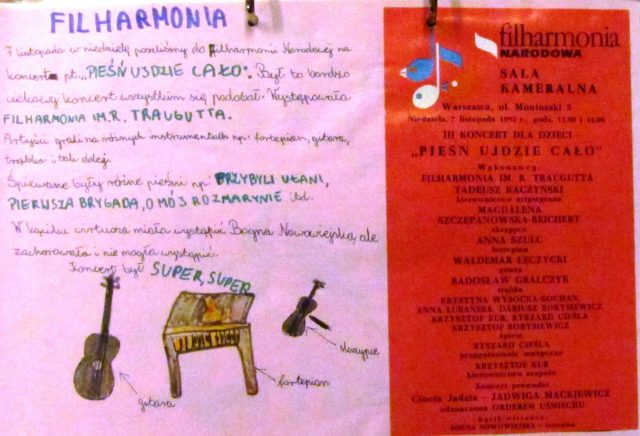 FILHARMONIA
7 listopada w niedzielę poszliśmy do Filharmonii Narodowej na
koncert pt. „PIEŚŃ UJDZIE CAŁO". Był to bardzo
ciekawy koncert wszystkim się podobał. Występowała
FILHARMONIA IM. R. TRAUGUTTA.
Artyści grali na różnych instrumentach np: fortepian, gitara,
trąbka i tak dalej.
Śpiewane były różne pieśni np: PRZYBYLI UŁANI,
PIERWSZA BRYGADA, O MÓJ ROZMARYNIE itd.
W kąciku wirtuoza miała wystąpić Bogna Nowowiejska, ale
zachorowała i nie mogła wystąpić.
Koncert był SUPER, SUPER
gitara
fortepian
skrzypce
filharmonia
NARODOWA
SALA
KAMERALNA
Warszawa, ul. Moniuszki 5
Niedziela, 7 listopada 1993 r., godz. 11.00 i 14.00
III KONCERT DLA DZIECI
„PIEŚŃ UJDZIE CAŁO"
Wykonawcy:
FILHARMONIA IM. R. TRAUGUTTA
TADEUSZ KACZYŃSKI
kierownictwo artystyczne
MAGDALENA
SZCZEPANOWSKA-REICHERT
skrzypce
ANNA SZULC
fortepian
WALDEMAR ŁĘCZYCKI
gitara
RADOSŁAW GRALCZYK
trąbka
KRYSTYNA WYSOCKA-KOCHAN,
ANNA LUBAŃSKA, DARIUSZ BORYSIEWICZ,
KRZYSZTOF KUR, RYSZARD CIEŚLA
KRZYSZTOF BORYSIEWICZ
śpiew
RYSZARD CIEŚLA
przygotowanie muzyczne
KRZYSZTOF KUR
kierownictwo zespołu
Koncert prowadzi
Ciocia Jadzia – JADWIGA MACKIEWICZ
odznaczona ORDEREM UŚMIECHU
kącik wirtuoza:
BOGNA NOWOWIEJSKA – fortepian